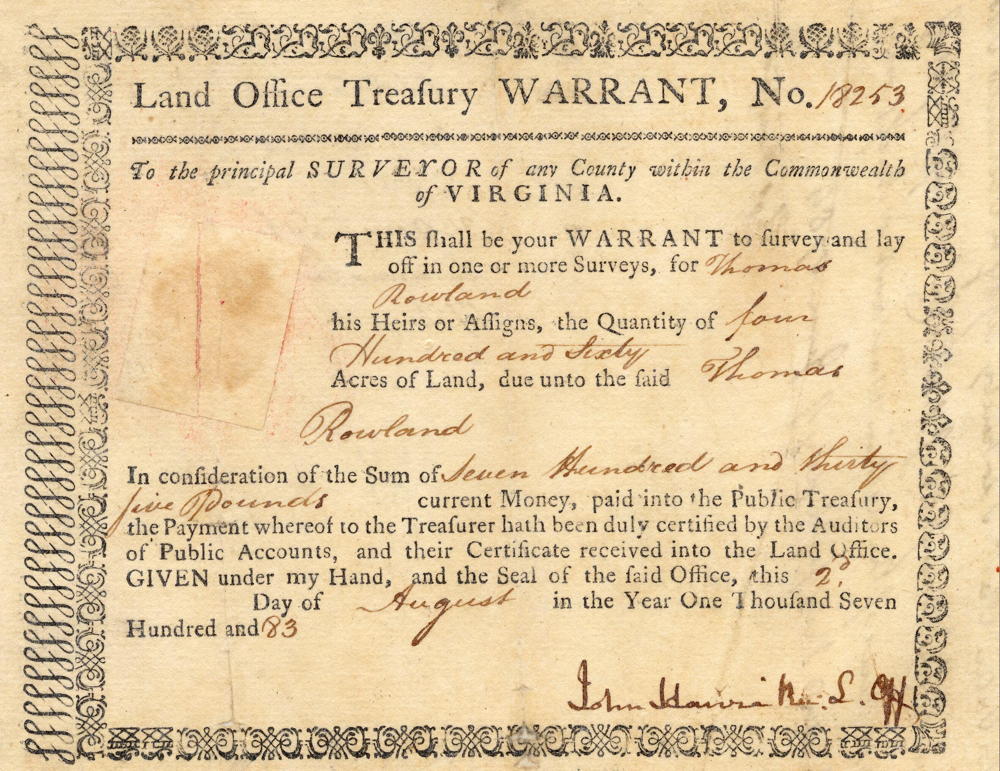 Land Office Treaſury WARRANT, No. 18253
To the principal SURVEYOR of any County within the Commonwealth
of VIRGINIA.
THIS ſhall be your WARRANT to ſurvey and lay
off in one or more Surveys, for Thomas
Rowland
his Heirs or Aſſigns, the Quantity of four
Hundred and Sixty
Acres of Land, due unto the ſaid Thomas
Rowland
In conſideration of the Sum of Seven Hundred and thirty
five Pounds current Money, paid into the Public Treaſury,
the Payment whereof to the Treaſurer hath been duly certified by the Auditors
of Public Accounts, and their Certificate received into the Land Office.
GIVEN under my Hand, and the Seal of the ſaid Office, this 2d.
Day of August in the Year One Thouſand Seven
Hundred and 83
John L. Off